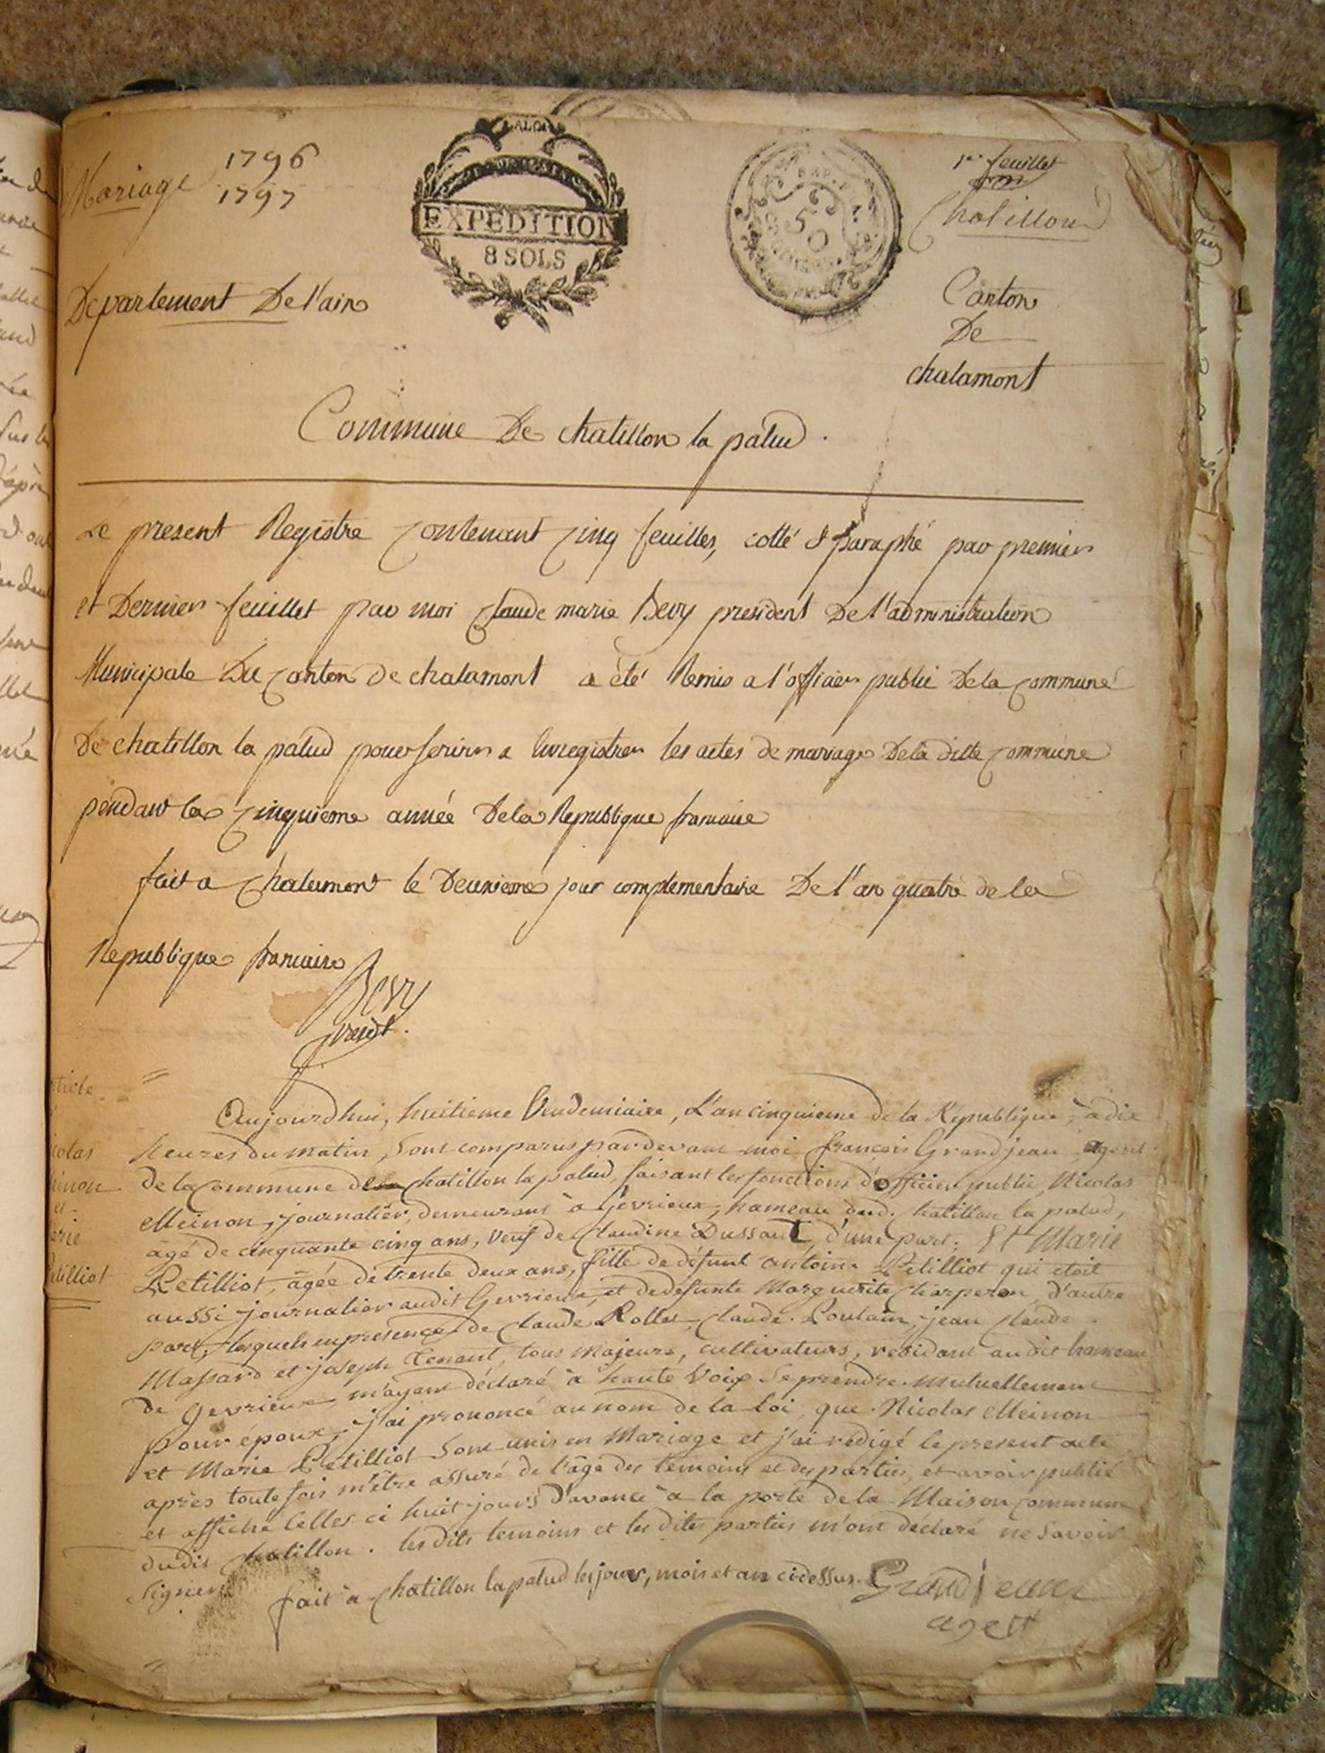 Mariage
1796
1797
EXPEDITION
8 SOLS
50
1er feuillet
Chatillon
Departement De l'ain
Canton
De
chalamont
Commune De chatillon la palud.
Le present Registre Contenant Cinq feuilles, cotté & paraphé par premier
et Dernier feuillet par moi Claude marie Bevy president De l'administration
Municipale Du Canton de chalamont a été Remis a l'officier public De la Commune
De chatillon la palud pour servir a Enregistrer les actes de mariage De la ditte Commune
pendant la Cinquieme année De la Republique francaise
fait a Chalamont le Deuxieme jour complementaire De l'an quatre de la
Republique francaise
Bevy
presdt.
Aujourd'hui, huitieme Vendemiaire, L'an cinquieme de la Republique, à dix
heures du matin, Sont comparus pardevant moi françois Grandjean agent
de la Commune de chatillon la palud, faisant les fonctions d'officier public, Nicolas
Meinon, journalier, demeurant à Gevrieux, hameau dud. Chatillon la palud,
âgé de cinquante cinq ans, veuf de Claudine Dussaut, d'une part; Et Marie
Petilliot, âgée de trente deux ans, fille de défunt antoine Petilliot qui étoit
aussi journalier audit Gevrieux, et de défunte Marguerite Charperon, d'autre
part, lesquels en presence de Claude Rollet, Claude Poulain, jean Claude
Massard et joseph Tenant, tous Majeurs, cultivateurs, residant audit hameau
de Gevrieux m'ayant déclaré à haute Voix Se prendre mutuellement
pour époux, j'ai prononcé au nom de la loi, que Nicolas Meinon
et Marie Petilliot Sont unis en Mariage et j'ai rédigé le present acte
après toute fois m'être assuré de l'âge des temoins et des parties, et avoir publié
et affiché Celles ci huit jours d'avance à la porte de la Maison Commune
dudit Chatillon. les dits temoins et les dites parties m'ont déclaré ne Savoir
Signer
fait à Chatillon la palud les jour, mois et an cidessus. Grandjean
agent
Petilliot